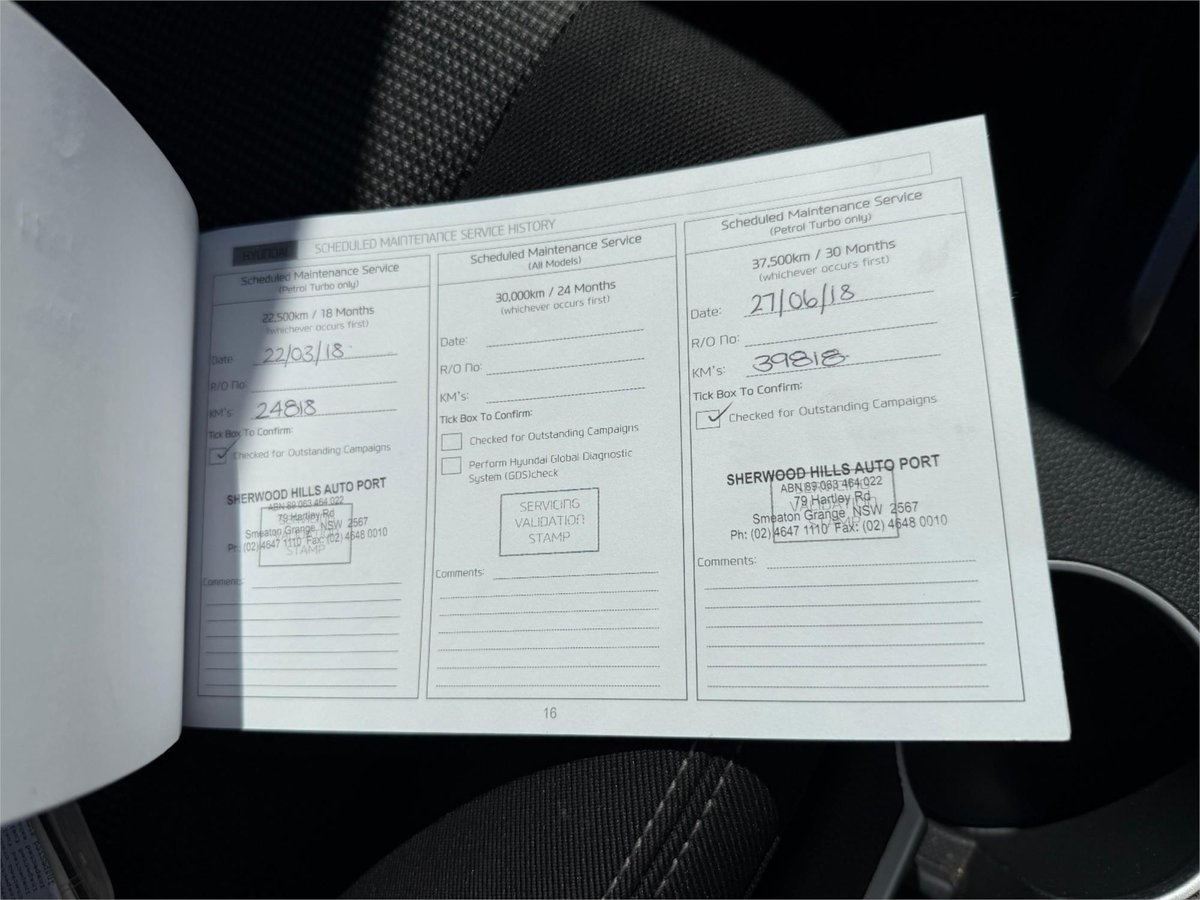 HYUNDAI SCHEDULED MAINTENANCE SERVICE HISTORY
Scheduled Maintenance Service
(Petrol Turbo only)
22,500km / 18 Months
(whichever occurs first)
Date 22/03/18
R/O No:
KM's: 24818
Tick Box To Confirm:
Checked for Outstanding Campaigns
SHERWOOD HILLS AUTO PORT
ABN 89 063 464 022
79 Hartley Rd
Smeaton Grange, NSW 2567
Ph: (02) 4647 1110 Fax: (02) 4648 0010
STAMP
Comments:
Scheduled Maintenance Service
(All Models)
30,000km / 24 Months
(whichever occurs first)
Date:
R/O No:
KM's:
Tick Box To Confirm:
Checked for Outstanding Campaigns
Perform Hyundai Global Diagnostic
System (GDS)check
SERVICING
VALIDATION
STAMP
Comments:
Scheduled Maintenance Service
(Petrol Turbo only)
37,500km / 30 Months
(whichever occurs first)
Date: 27/06/18
R/O No:
KM's: 39818
Tick Box To Confirm:
Checked for Outstanding Campaigns
SHERWOOD HILLS AUTO PORT
ABN 89 063 464 022
79 Hartley Rd
VALIDATION
Smeaton Grange, NSW 2567
Ph: (02) 4647 1110 Fax: (02) 4648 0010
Comments:
16